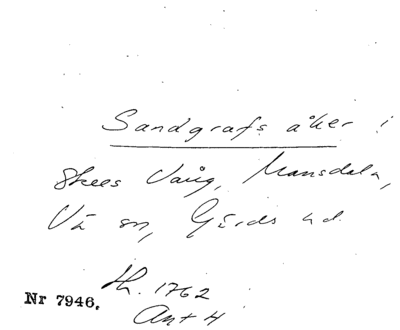 Sandgrafs åker i
Skees Vång, Mansdala,
Vä sn, Gärds hd.
Lh. 1762
Ant 4
Nr 7946.